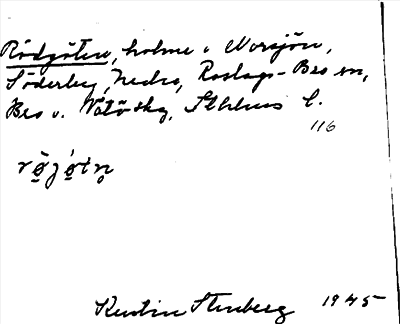 Rödgöten, holme i Norsjön,
Söderby, Nedre, Roslags-Bro sn,
Bro o. Vätö skg, Sthlms l.
116
rö̱jö̀tn̥
Kerstin Stenberg 1945